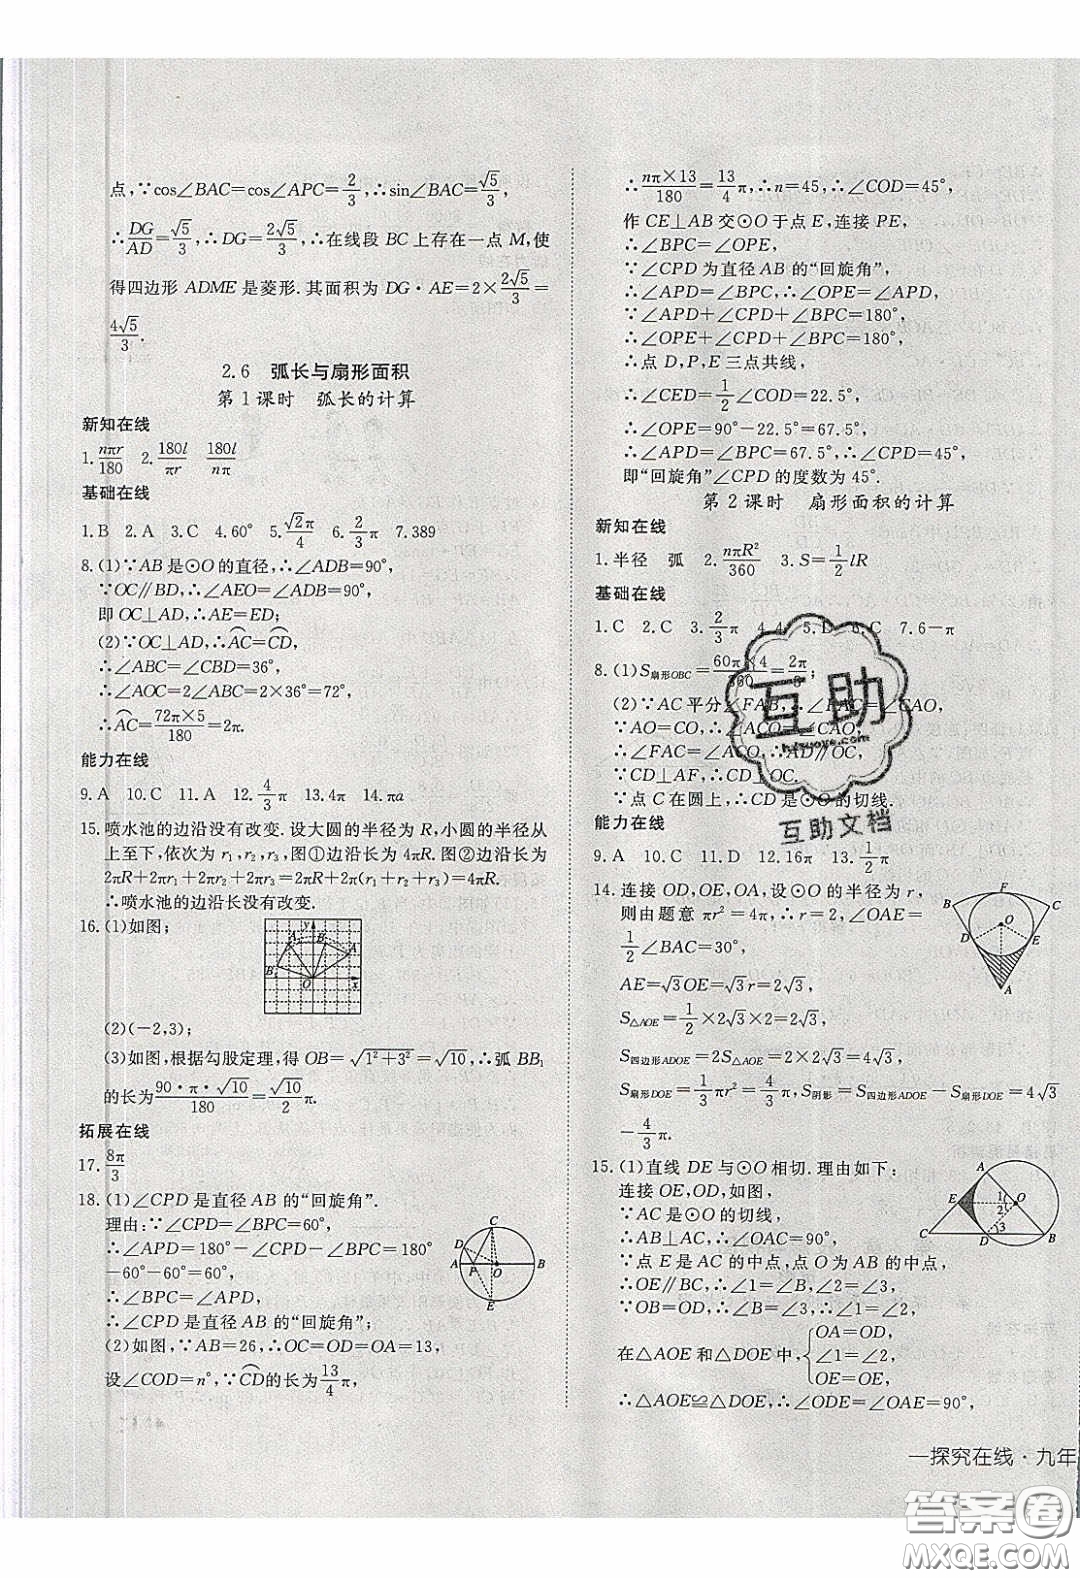 点,∵cos∠BAC=cos∠APC=2/3,∴sin∠BAC=√5/3,
∴DG/AD=√5/3,∴DG=2√5/3,∴在线段 BC 上存在一点 M,使
得四边形 ADME 是菱形.其面积为 DG·AE=2×2√5/3=
4√5/3.
2.6 弧长与扇形面积
第1课时 弧长的计算
新知在线
1.nπr/180 2.180l/πr 180l/nπ
基础在线
1.B 2.A 3.C 4.60° 5.√2π/4 6.2/3π 7.389
8.(1)∵AB是⊙O的直径,∴∠ADB=90°,
∵OC∥BD,∴∠AEO=∠ADB=90°,
即 OC⊥AD,∴AE=ED;
(2)∵OC⊥AD,∴A͡C=C͡D,
∴∠ABC=∠CBD=36°,
∴∠AOC=2∠ABC=2×36°=72°,
∴A͡C=72π×5/180=2π.
能力在线
9.A 10.C 11.A 12.4/3π 13.4π 14.πa
15.喷水池的边沿没有改变.设大圆的半径为R,小圆的半径从
上至下,依次为 r₁,r₂,r₃,图①边沿长为 4πR.图②边沿长为
2πR+2πr₁+2πr₂+2πr₃=2πR+2π(r₁+r₂+r₃)=4πR.
∴喷水池的边沿长没有改变.
16.(1)如图;
(2)(-2,3);
(3)如图,根据勾股定理,得 OB=√(1²+3²)=√10,∴弧 BB₁
的长为90·π·√10/180=√10/2π.
拓展在线
17.8π/3
18.(1)∠CPD 是直径 AB 的“回旋角”.
理由:∵∠CPD=∠BPC=60°,
∴∠APD=180°-∠CPD-∠BPC=180°
-60°-60°=60°,
∴∠BPC=∠APD,
∴∠CPD是直径 AB 的“回旋角”;
(2)如图,∵AB=26,∴OC=OD=OA=13,
设∠COD=n°,∵C͡D的长为13/4π,
∴nπ×13/180=13/4π,∴n=45,∴∠COD=45°,
作 CE⊥AB 交⊙O 于点 E,连接 PE,
∴∠BPC=∠OPE,
∵∠CPD 为直径 AB 的“回旋角”,
∴∠APD=∠BPC,∴∠OPE=∠APD,
∵∠APD+∠CPD+∠BPC=180°,
∴∠OPE+∠CPD+∠BPC=180°,
∴点 D,P,E 三点共线,
∴∠CED=1/2∠COD=22.5°,
∴∠OPE=90°-22.5°=67.5°,
∴∠APD=∠BPC=67.5°,∴∠CPD=45°,
即“回旋角”∠CPD的度数为45°.
第2课时 扇形面积的计算
新知在线
1.半径 弧 2.nπR²/360 3.S=1/2lR
基础在线
1.C 2.C 3.2/3π 4.4 5.D 6.C 7.6-π
8.(1)S扇形OBC=60π×4/360=2π/3;
(2)∵AC平分∠FAB,∴∠FAC=∠CAO,
∵AO=CO,∴∠ACO=∠CAO,
∴∠FAC=∠ACO,∴AD∥OC,
∵CD⊥AF,∴CD⊥OC.
∵点 C 在圆上,∴CD 是⊙O 的切线.
能力在线
9.A 10.C 11.D 12.16π 13.1/2π
14.连接 OD,OE,OA,设⊙O 的半径为 r,
则由题意 πr²=4π,∴r=2,∠OAE=
1/2∠BAC=30°,
AE=√3OE=√3r=2√3,
S△AOE=1/2×2√3×2=2√3,
S四边形ADOE=2S△AOE=2×2√3=4√3,
S扇形DOE=1/3πr²=4/3π,S阴影=S四边形ADOE-S扇形DOE=4√3
-4/3π.
15.(1)直线 DE 与⊙O 相切.理由如下:
连接OE,OD,如图,
∵AC 是⊙O 的切线,
∴AB⊥AC,∴∠OAC=90°,
∵点 E 是 AC 的中点,点 O 为 AB 的中点,
∴OE∥BC,∴∠1=∠B,∠2=∠3,
∵OB=OD,∴∠B=∠3,∴∠1=∠2,
在△AOE和△DOE中,{OA=OD, ∠1=∠2, OE=OE,
∴△AOE≌△DOE,∴∠ODE=∠OAE=90°,
一探究在线·九年
互助
互助文档
答案圈
MXQE.COM